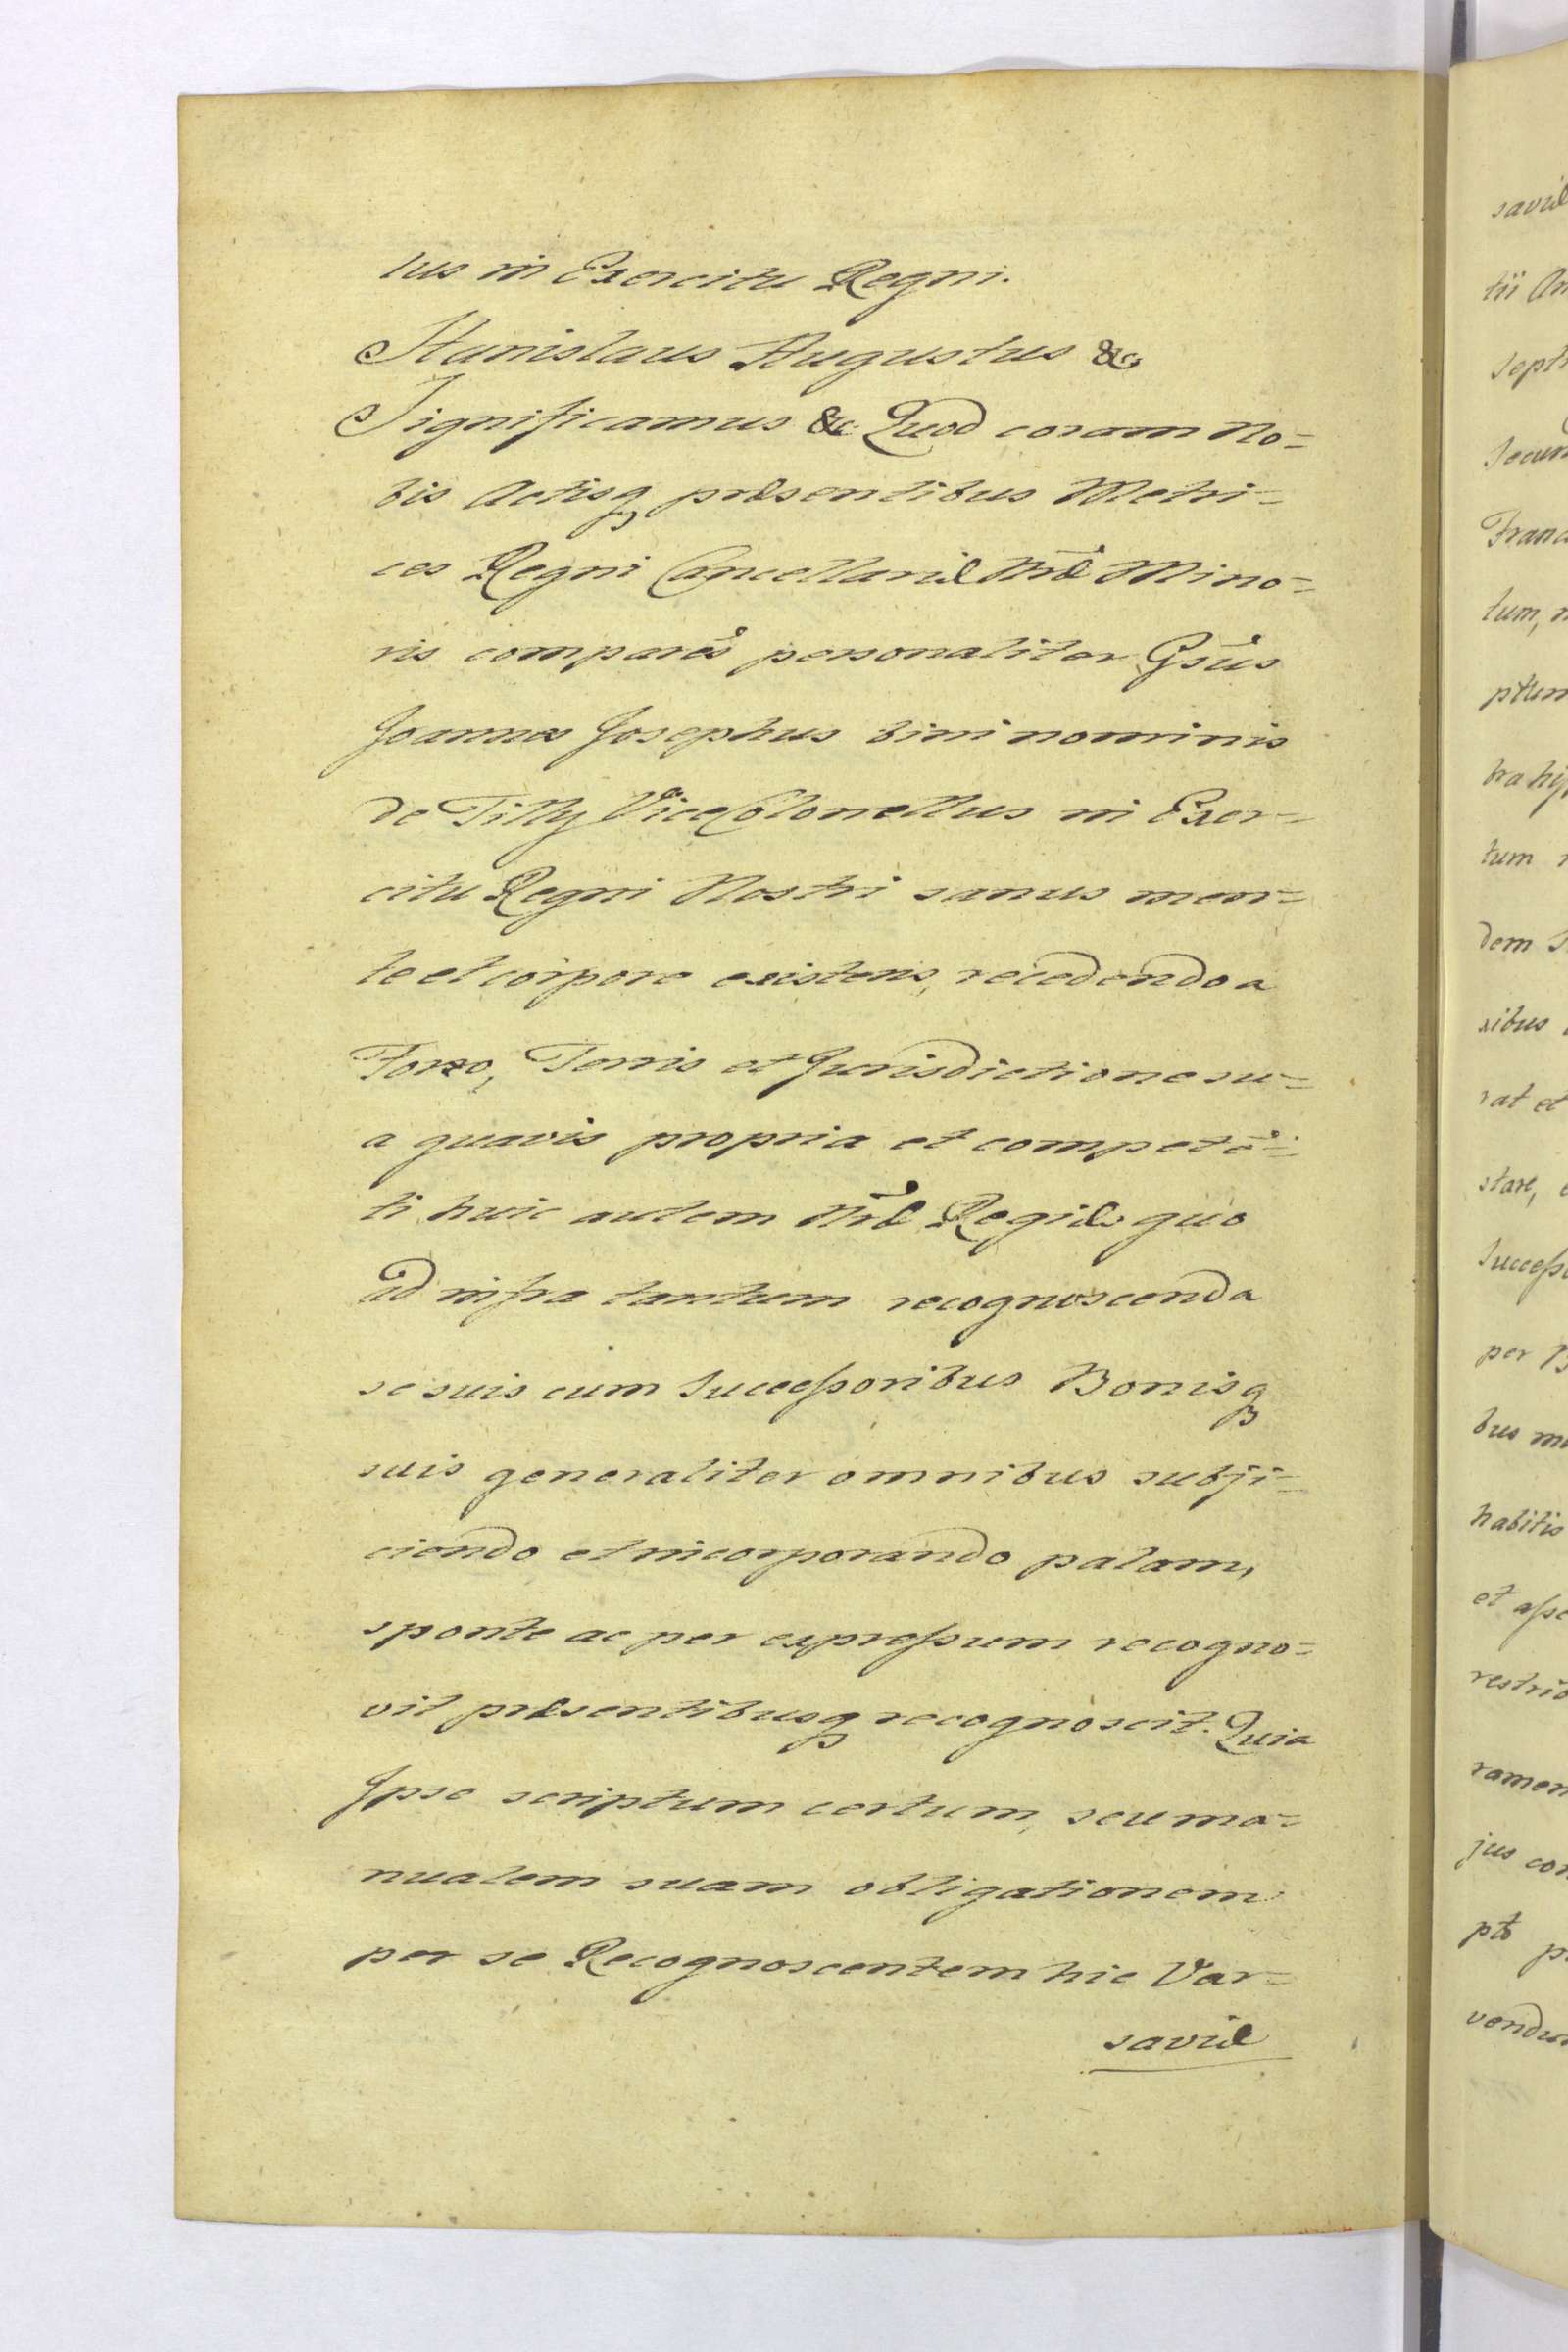 lus in Exercitu Regni.
Stanislaus Augustus &c
Significamus &c Quod coram No=
bis Actisq præsentibus Metri=
ces Regni Cancellariæ Nræ Mino=
ris comparēs personaliter Gsus
Joannes Josephus bini nominis
de Tilly ViceColonellus in Exer=
citu Regni Nostri sanus men=
te et corpore existens, recedendo a
Foro, Terris et Jurisdictione su=
a quavis propria et competē=
ti huic autem Nræ Regiæ quo
ad infra tantum recognoscenda
se suis cum Successoribus Bonisq
suis generaliter omnibus subji=
ciendo et incorporando palam,
sponte ac per expressum recogno=
vit præsentibusq recognoscit. Quia
Ipse scriptum certum, seu ma=
nualem suam obligationem
per se Recognoscentem hic Var=
saviæ
saviæ
tii
sept
Secun
Franc
tum,
ptum
tra
tum
dem
xibus
rat et
stare,
Success
per
bus
habitis
et
restrib
ramen
jus con
pto
vendu